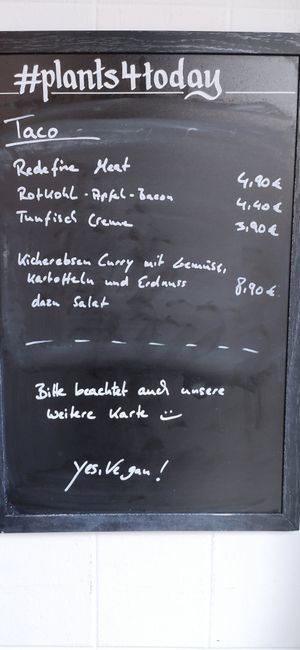 #plants4today
Taco
Redefine Meat 4,90€
Rotkohl-Apfel-Bacon 4,40€
Tunfisch Creme 3,90€
Kichererbsen Curry mit Gemüse,
Kartoffeln und Erdnuss 8,90€
dazu Salat
Bitte beachtet auch unsere
weitere Karte ☺
Yes, Vegan!